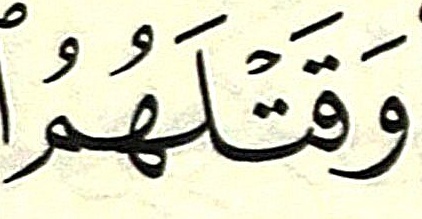 وَقَتْلَهُمُ ا